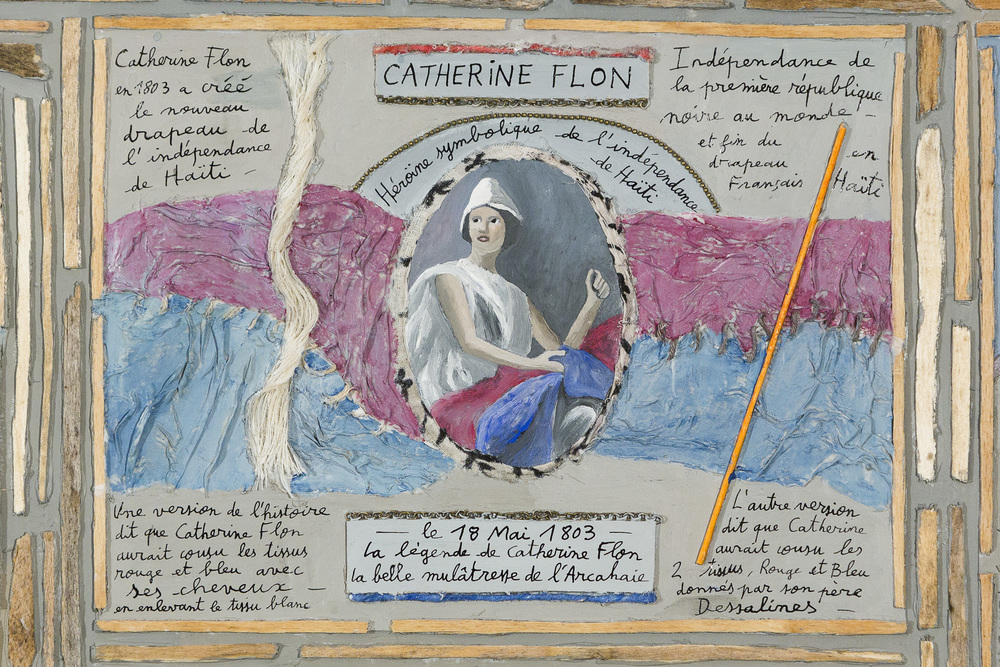 Catherine Flon
en 1803 a créé
le nouveau
drapeau de
l'indépendance
de Haïti –
CATHERINE FLON
Héroïne symbolique de l'indépendance
de Haïti
Indépendance de
la première république
noire au monde! –
et fin du
drapeau en
Français Haïti
Une version de l'histoire
dit que Catherine Flon
aurait cousu les tissus
rouge et bleu avec
ses cheveux –
en enlevant le tissu blanc
— le 18 Mai 1803 —
La légende de Catherine Flon
la belle mulâtresse de l'Arcahaie
L'autre version
dit que Catherine
aurait cousu les
2 tissus, Rouge et Bleu
donnés par son père
Dessalines –